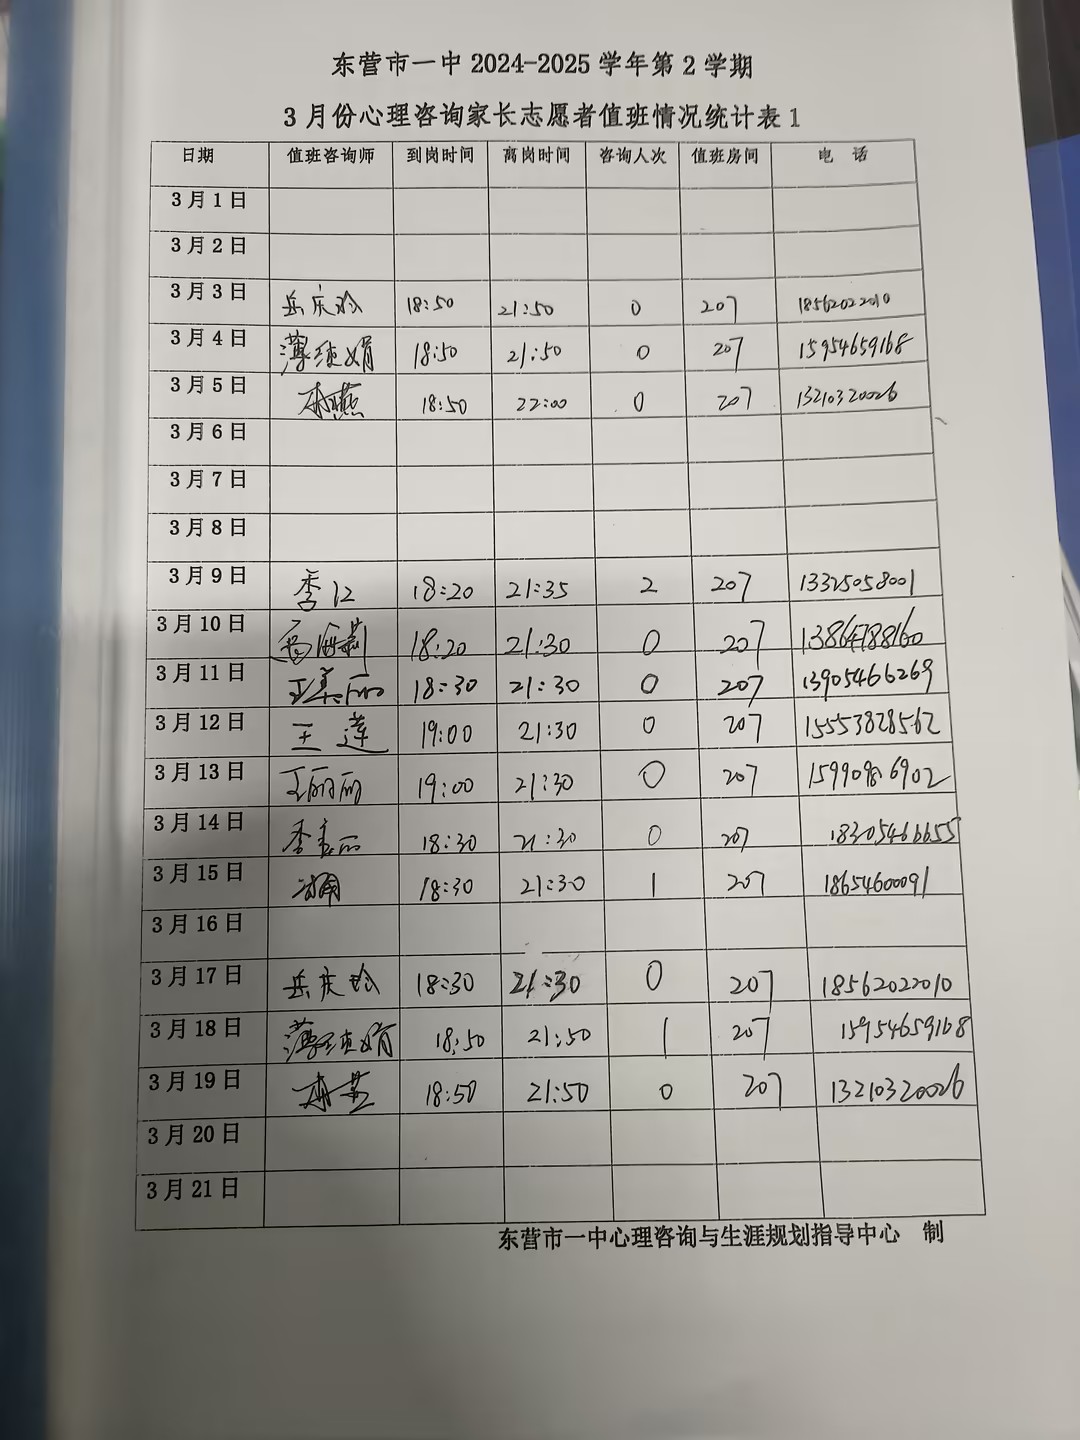 东营市一中 2024-2025 学年第 2 学期
3 月份心理咨询家长志愿者值班情况统计表 1
日期 值班咨询师 到岗时间 离岗时间 咨询人次 值班房间 电 话
3 月 1 日
3 月 2 日
3 月 3 日 岳庆玲 18:50 21:50 0 207 18562022010
3 月 4 日 薄纯娟 18:50 21:50 0 207 15954659168
3 月 5 日 18:50 22:00 0 207 13210320026
3 月 6 日
3 月 7 日
3 月 8 日
3 月 9 日 李江 18:20 21:35 2 207 13325058001
3 月 10 日 18:20 21:30 0 207 13864788160
3 月 11 日 王美丽 18:30 21:30 0 207 13905466269
3 月 12 日 王莲 19:00 21:30 0 207 15553828562
3 月 13 日 王丽丽 19:00 21:30 0 207
3 月 14 日 18:30 21:30 0 207 18305466655
3 月 15 日 18:30 21:30 1 207 18654600091
3 月 16 日
3 月 17 日 岳庆玲 18:30 21:30 0 207 18562022010
3 月 18 日 18:50 21:50 1 207 15954659168
3 月 19 日 18:50 21:50 0 207 13210320026
3 月 20 日
3 月 21 日
东营市一中心理咨询与生涯规划指导中心 制